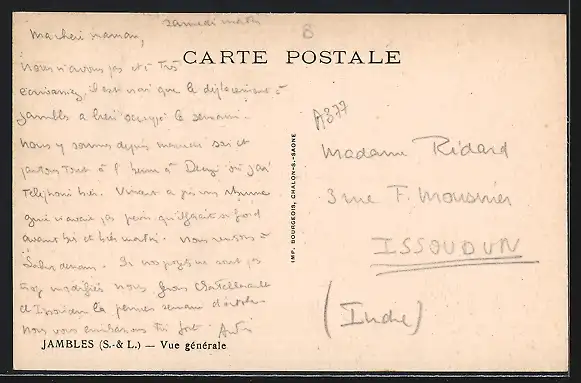 samedi matin
8
Ma chère maman,
CARTE POSTALE
nous n'avons pas été très
écrivassiez, il est vrai que le déplacement à
Jambles a bien occupé la semaine.
nous y sommes depuis mercredi soir et
partons tout à l'heure à où j'ai
téléphoné hier. Vincent a pris un rhume
qui n'avait pas
avant hier et hier matin. nous rentrons à
demain. Si nos projets ne sont pas
trop modifiés nous Chatellerault
et Issoudun la semaine d'octobre.
nous vous embrassons très fort.
A377
Madame Ridard
3 rue F.
ISSOUDUN
(Indre)
IMP. BOURGEOIS, CHALON-S.-SAONE
JAMBLES (S.-& L.) — Vue générale